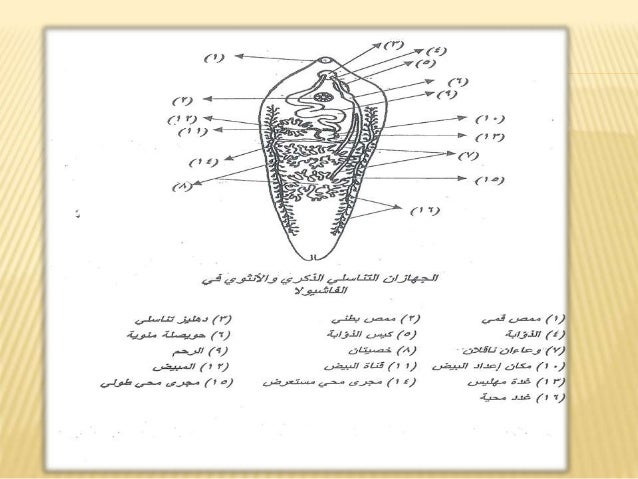 (٣)
(٤)
(١)
(٥)
(٦)
(٩)
(٢)
(١٢)
(١٠)
(١١)
(١٣)
(٧)
(١٤)
(١٥)
(٨)
(١٦)
الجهازان التناسلي الذكري والأنثوي في
الفاشيولا
(١) ممص قمى (٢) ممص بطنى (٣) دهليز تناسلى
(٤) الذؤابة (٥) كيس الذؤابة (٦) حويصلة منوية
(٧) وعاءان ناقلان (٨) خصيتان (٩) الرحم
(١٠) مكان إعداد البيض (١١) قناة البيض (١٢) المبيض
(١٣) غدة مهليس (١٤) مجرى محى مستعرض (١٥) مجرى محى طولى
(١٦) غدد محية